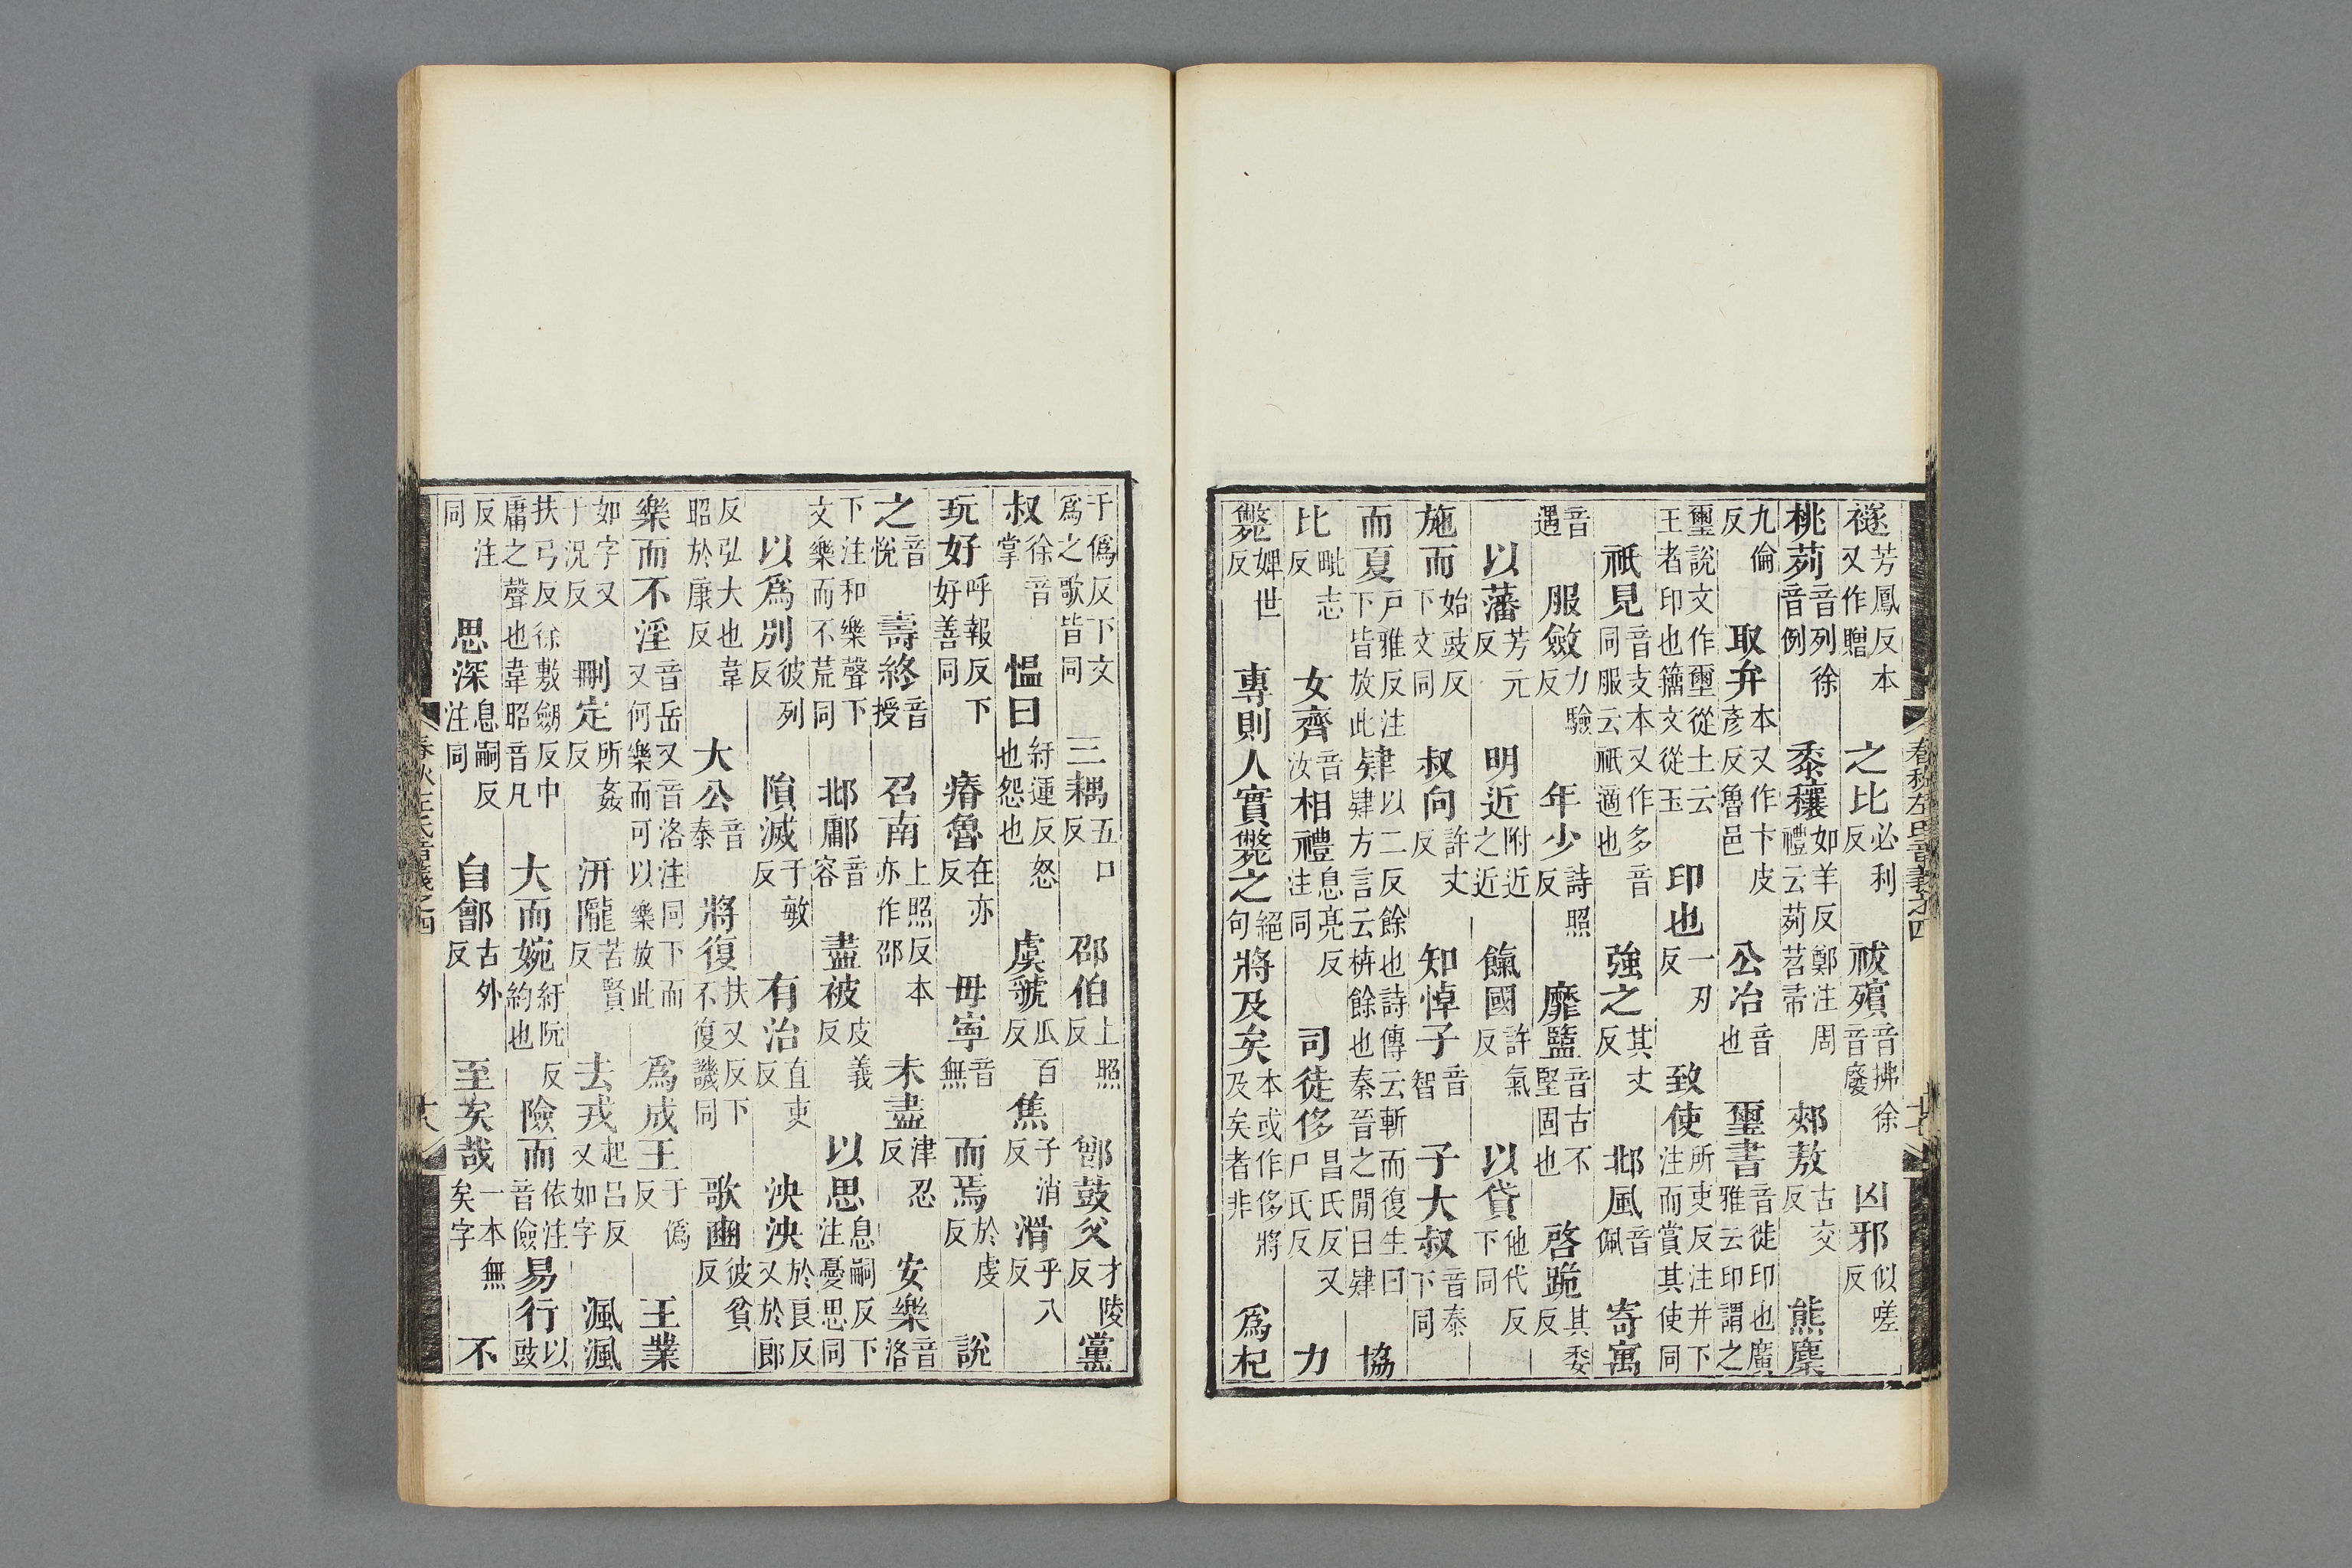 春秋左氏音義之四
襚芳鳳反本又作賵 之比必利反 祓殯音拂徐音廢 凶邪似嗟反
桃茢音列徐音例 黍穰如羊反鄭注周禮云茢苕帚 郟敖古交反 熊麇
九倫反 取弁本又作卞皮彥反魯邑 公冶音也 璽書音徙印也廣雅云印謂之
璽說文作壐從土云王者印也籀文從玉 印也一刃反 致使所吏反注并下注而賞其使同
祇見音支本又作多音同服云祇適也 強之其丈反 邶風音佩 寄寓
音遇 服斂力驗反 年少詩照反 靡盬音古不堅固也 啓跪其委反
以藩芳元反 明近附近之近 餼國許氣反 以貸他代反下同
施而始豉反下文同 叔向許丈反 知悼子音智 子大叔音泰下同
而夏戶雅反注下皆放此 肄以二反餘也詩傳云斬而復生曰肄方言云枿餘也秦晉之閒曰肄 協
比毗志反 女齊音汝 相禮息亮反注同 司徒侈昌氏反又尸氏反 力
斃婢世反 專則人實斃之絕句 將及矣本或作侈將及矣者非 爲杞
于僞反下文爲之歌皆同 三耦五口反 邵伯上照反 鄫鼓父才陵反 黨
叔徐音掌 慍曰紆運反怒也怨也 虞虢瓜百反 焦子消反 滑乎八反
玩好呼報反下好善同 瘠魯在亦反 毋寧音無 而焉於虔反 說
之音悅 壽終音授 召南上照反本亦作邵 未盡津忍反 安樂音洛
下注和樂聲下文樂而不荒同 邶鄘音容 盡被皮義反 以思息嗣反下注憂思同
以爲別彼列反 隕滅于敏反 有治直吏反 泱泱於良反又於郎
反弘大也韋昭於康反 大公音泰 將復扶又反下不復譏同 歌豳彼貧反
樂而不淫音岳又音洛注同下而又何樂而可以樂放此 爲成王于僞反 王業
如字又于況反 刪定所姦反 汧隴苦賢反 去戎起呂反又如字 渢渢
扶弓反徐敷劒反中庸之聲也韋昭音凡 大而婉紆阮反約也 險而依注音儉 易行以豉
反注同 思深息嗣反注同 自鄶古外反 至矣哉一本無矣字 不
春秋左氏音義之四